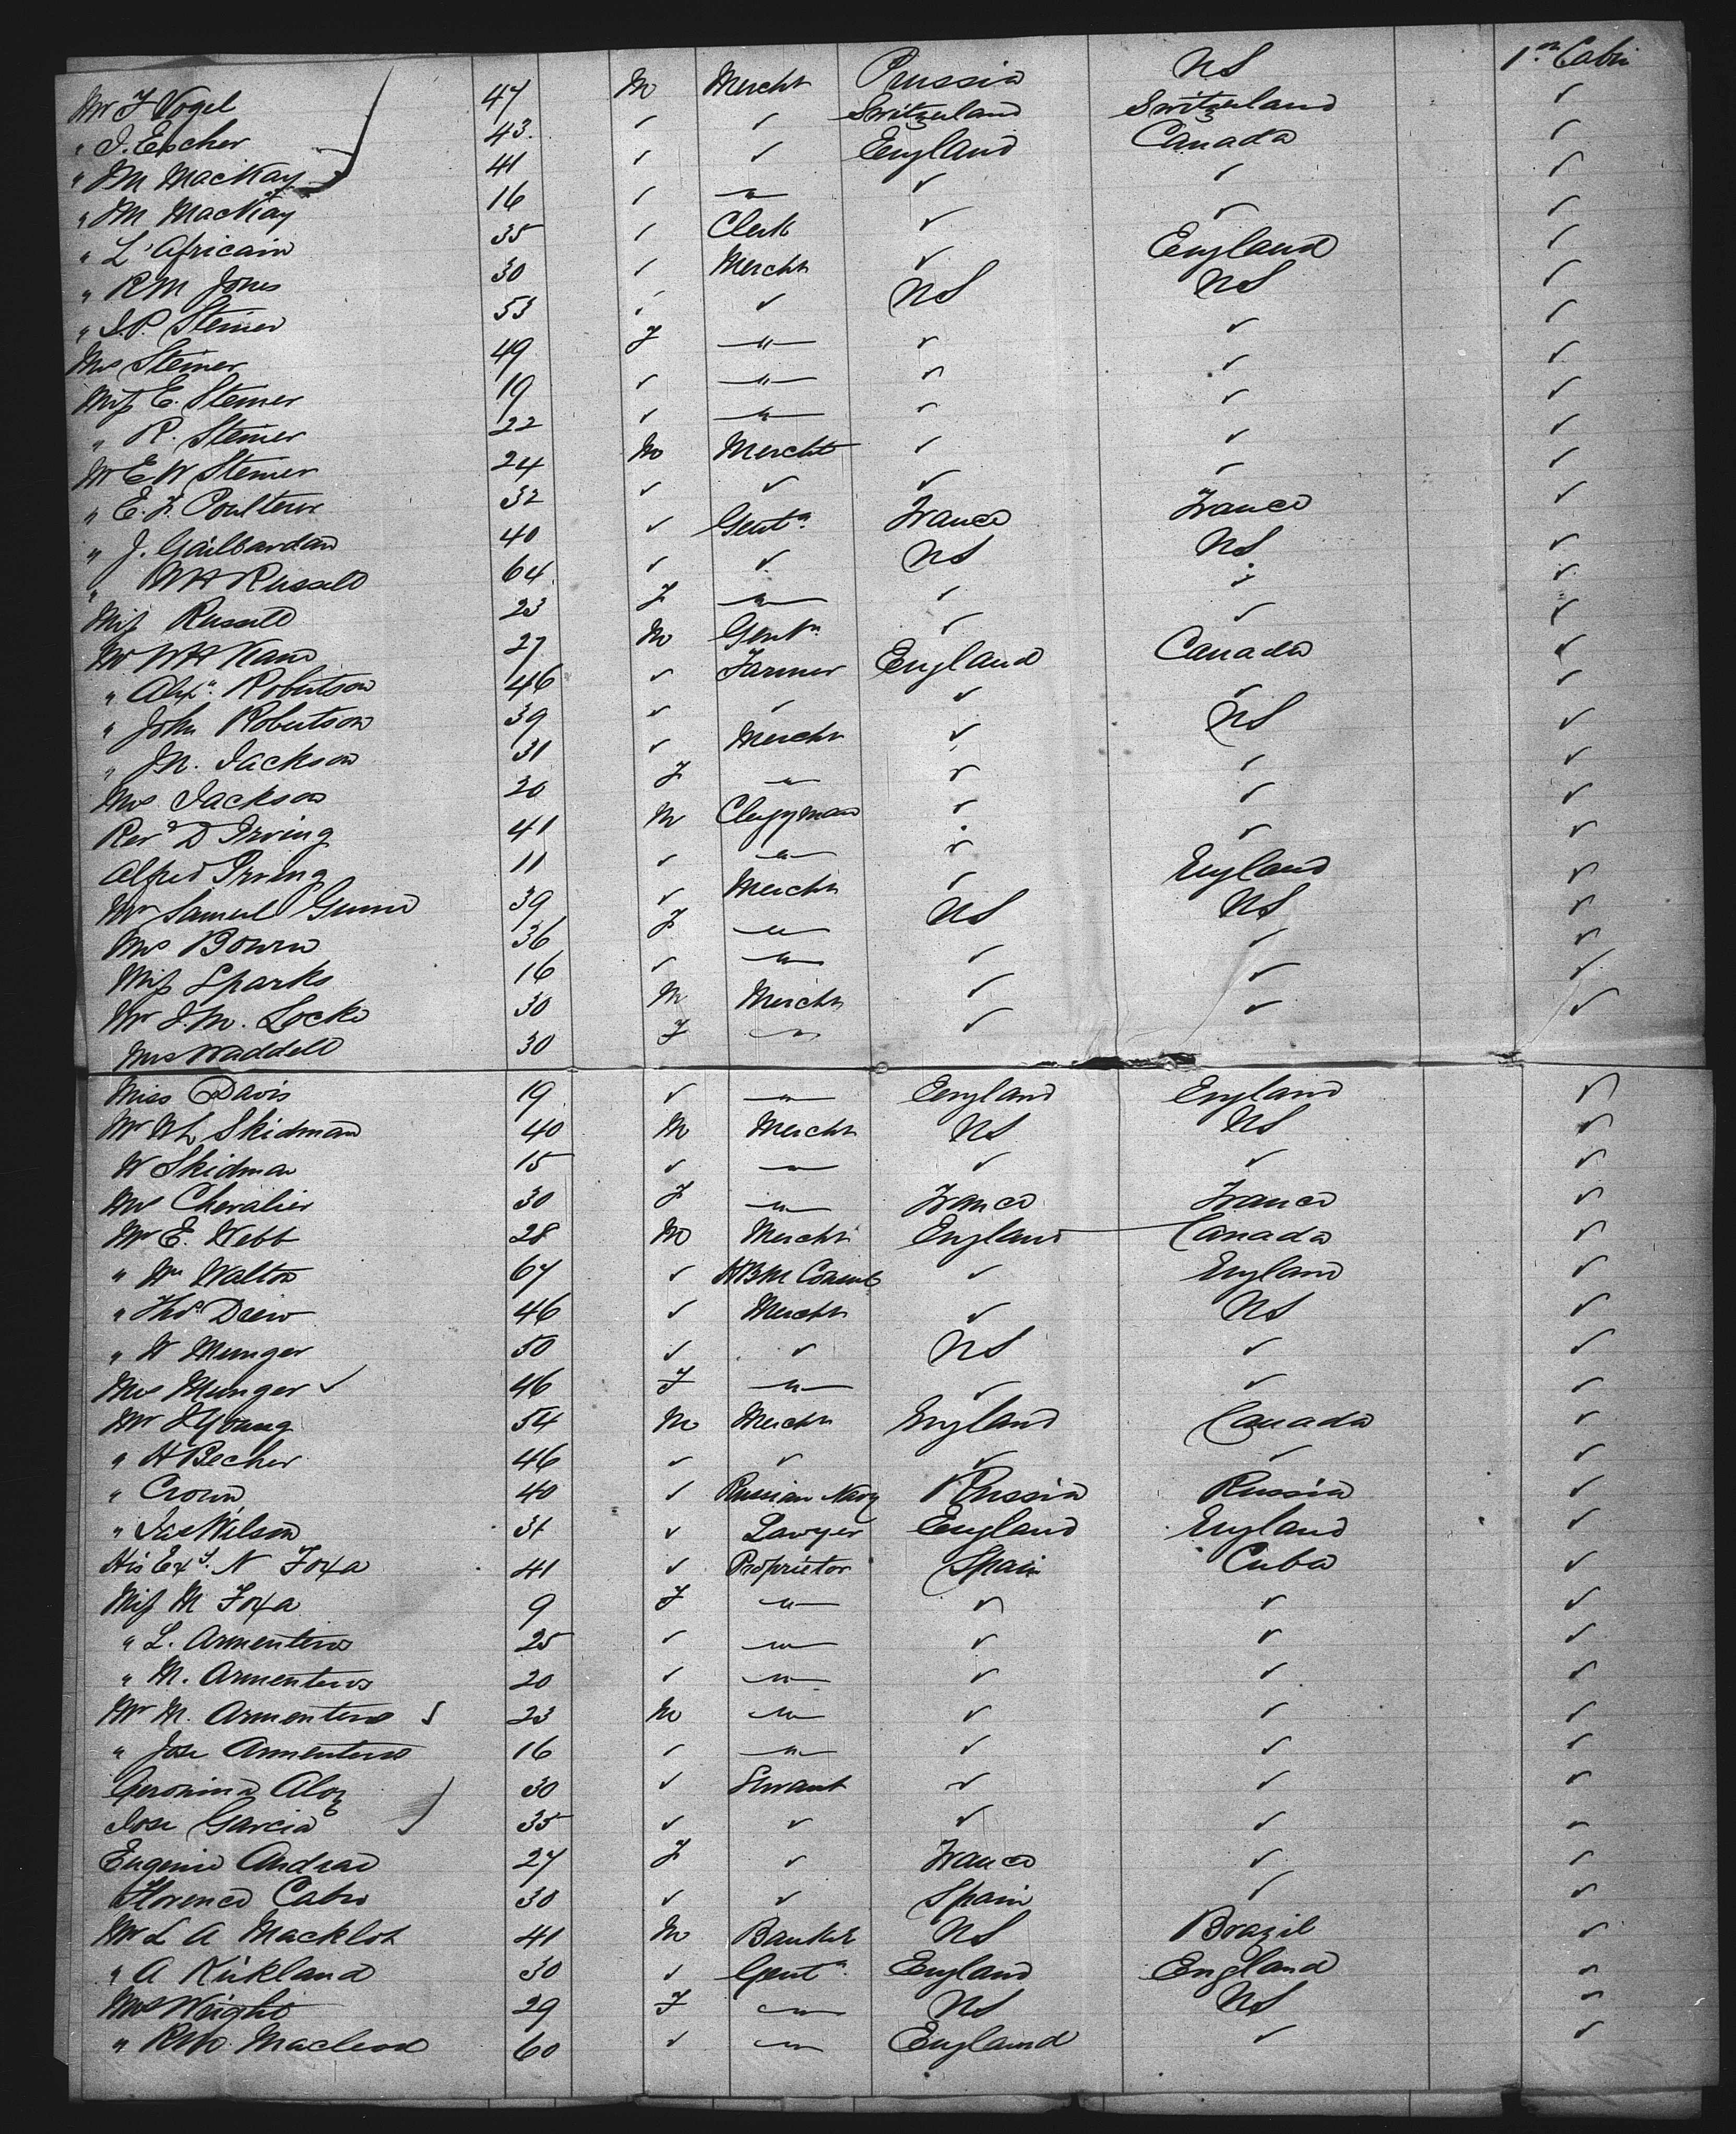 1st Cabin
Mr F Vogel 47 M Mercht Prussia US
" J. Escher 43 ✓ ✓ Switzerland Switzerland ✓
" JM MacKay 41 ✓ ✓ England Canada ✓
" JM MacKay 16 ✓ —"— ✓ ✓ ✓
" L'Africain 35 ✓ Clerk ✓ ✓ ✓
" RM Jones 30 ✓ Mercht ✓ England ✓
" S.P. Steiner 53 ✓ ✓ US US ✓
Mrs Steiner 49 F —"— ✓ ✓ ✓
Miss E. Steiner 19 ✓ —"— ✓ ✓ ✓
" R. Steiner 22 ✓ —"— ✓ ✓ ✓
Mr E W Steiner 24 M Mercht ✓ ✓ ✓
" E. F. 32 ✓ ✓ ✓ ✓ ✓
" J. 40 ✓ Gentn France France ✓
" WH Russell 64 ✓ ✓ US US ✓
Miss Russell 23 F —"— ✓ ✓ ✓
Mr WH Kane 27 M Gentn ✓ ✓ ✓
" Alexr. Robertson 46 ✓ Farmer England Canada ✓
" John Robertson 39 ✓ ✓ ✓ ✓ ✓
" JN. Jackson 31 ✓ Mercht ✓ US ✓
Mrs Jackson 20 F —"— ✓ ✓ ✓
Revd D Irving 41 M Clergyman ✓ ✓ ✓
Alfred Irving 11 ✓ —"— ✓ ✓ ✓
Mr Samuel 39 ✓ Mercht ✓ England ✓
Mrs Bowen 36 F —"— US US ✓
Miss Sparks 16 ✓ —"— ✓ ✓ ✓
Mr J.M. Locke 30 M Mercht ✓ ✓ ✓
Mrs Waddell 30 F —"— ✓ ✓ ✓
Miss Davis 19 ✓ —"— England England ✓
Mr WL Skidman 40 M Mercht US US ✓
W Skidman 15 ✓ —"— ✓ ✓ ✓
Mrs Chevalier 30 F —"— France France ✓
Mr E. Webb 28 M Mercht England Canada ✓
" Wm Walton 67 ✓ HBM Consul ✓ England ✓
" Thos. Drew 46 ✓ Mercht ✓ US ✓
" W Munger 50 ✓ ✓ US ✓ ✓
Mrs Munger ✓ 46 F —"— ✓ ✓ ✓
Mr J Young 54 M Mercht England Canada ✓
" H Becher 46 ✓ ✓ ✓ ✓ ✓
" Crown 40 ✓ Russian Navy Russia Russia ✓
" Jas Wilson 31 ✓ Lawyer England England ✓
His Exy. N Foxa 41 ✓ Proprietor Spain Cuba ✓
Miss M Foxa 9 F —"— ✓ ✓ ✓
" L. Armenteros 25 ✓ —"— ✓ ✓ ✓
" M. Armenteros 20 ✓ —"— ✓ ✓ ✓
Mr M. Armenteros 23 M —"— ✓ ✓ ✓
" Jose Armenteros 16 ✓ —"— ✓ ✓ ✓
Geronima 30 ✓ Servant ✓ ✓ ✓
Jose Garcia 35 ✓ ✓ ✓ ✓ ✓
Eugenie 27 F ✓ France ✓ ✓
Florence 30 ✓ ✓ Spain ✓ ✓
Mr L A Macklot 41 M Banker US Brazil ✓
" A Kirkland 30 ✓ Gentn. England England ✓
Mrs Wright 29 F —"— US US ✓
" Macleod 60 ✓ —"— England ✓ ✓